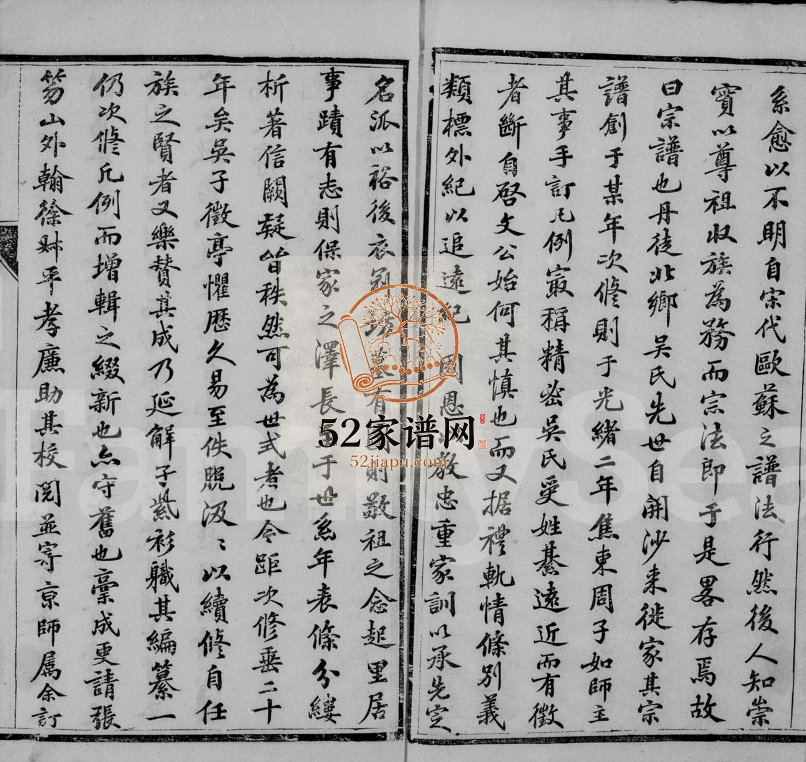 系愈以不明自宋代歐蘇之譜法行然後人知崇
實以尊祖收族為務而宗法即于是畧存焉故
曰宗譜也丹徒北鄉吳氏先世自開沙来徙家其宗
譜創于某年次修則于光緒二年焦東周子如師主
其事手訂凡例冣稱精宻吳氏受姓綦遠近而有徵
者斷自啓文公始何其慎也而又据禮軌情條別義
類標外紀以追遠紀 恩 教忠重家訓以承先定
名派以裕後衣冠 墓有 則敬祖之念起里居
事蹟有志則保家之澤長 于世系年表條分縷
析著信闕疑皆秩然可為世式者也今距次修垂二十
年矣吳子徵亭懼歷久易至佚脫汲〻以續修自任
族之賢者又樂贊其成乃延解子紫衫職其編纂一
仍次修凡例而增輯之綴新也亦守舊也稾成更請張
笏山外翰徐 平孝廉助其校閱並寄京師属余訂
52家谱网
52jiapu.com